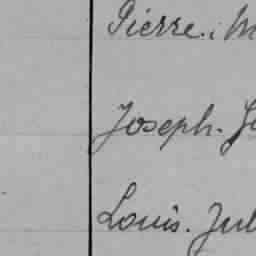 Pierre. M
Joseph. J
Louis. Jul